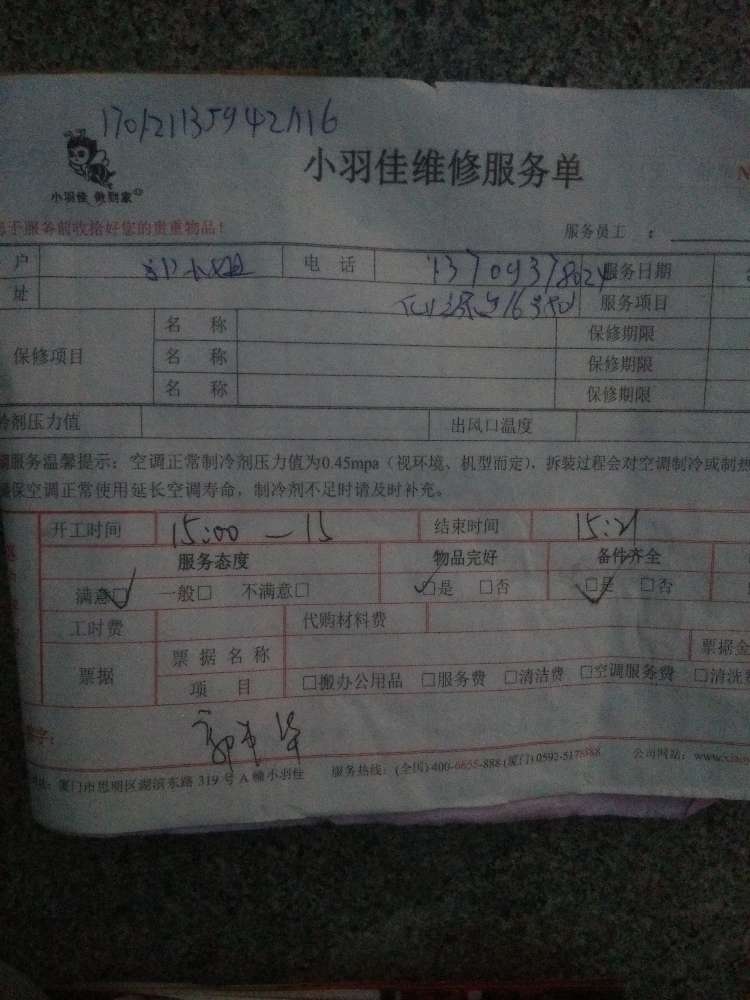 小羽佳维修服务单
小羽佳 做到家
于服务前收拾好您的贵重物品！
服务员工 ：
户 电 话 服务日期
址 服务项目
保修项目
名 称 保修期限
名 称 保修期限
名 称 保修期限
冷剂压力值 出风口温度
服务温馨提示：空调正常制冷剂压力值为0.45mpa（视环境、机型而定），拆装过程会对空调制冷或制热
保空调正常使用延长空调寿命，制冷剂不足时请及时补充。
开工时间 15:00 — 15 结束时间 15:21
服务态度 物品完好 备件齐全
满意□ 一般□ 不满意□ □是 □否 □是 □否
工时费 代购材料费
票据 票 据 名 称 票据金
项 目 □搬办公用品 □服务费 □清洁费 □空调服务费 □清洗
厦门市思明区湖滨东路 319 号 A 幢小羽佳 服务热线：(全国)400-6655-888 (厦门)0592-5178888 公司网站：www.xia